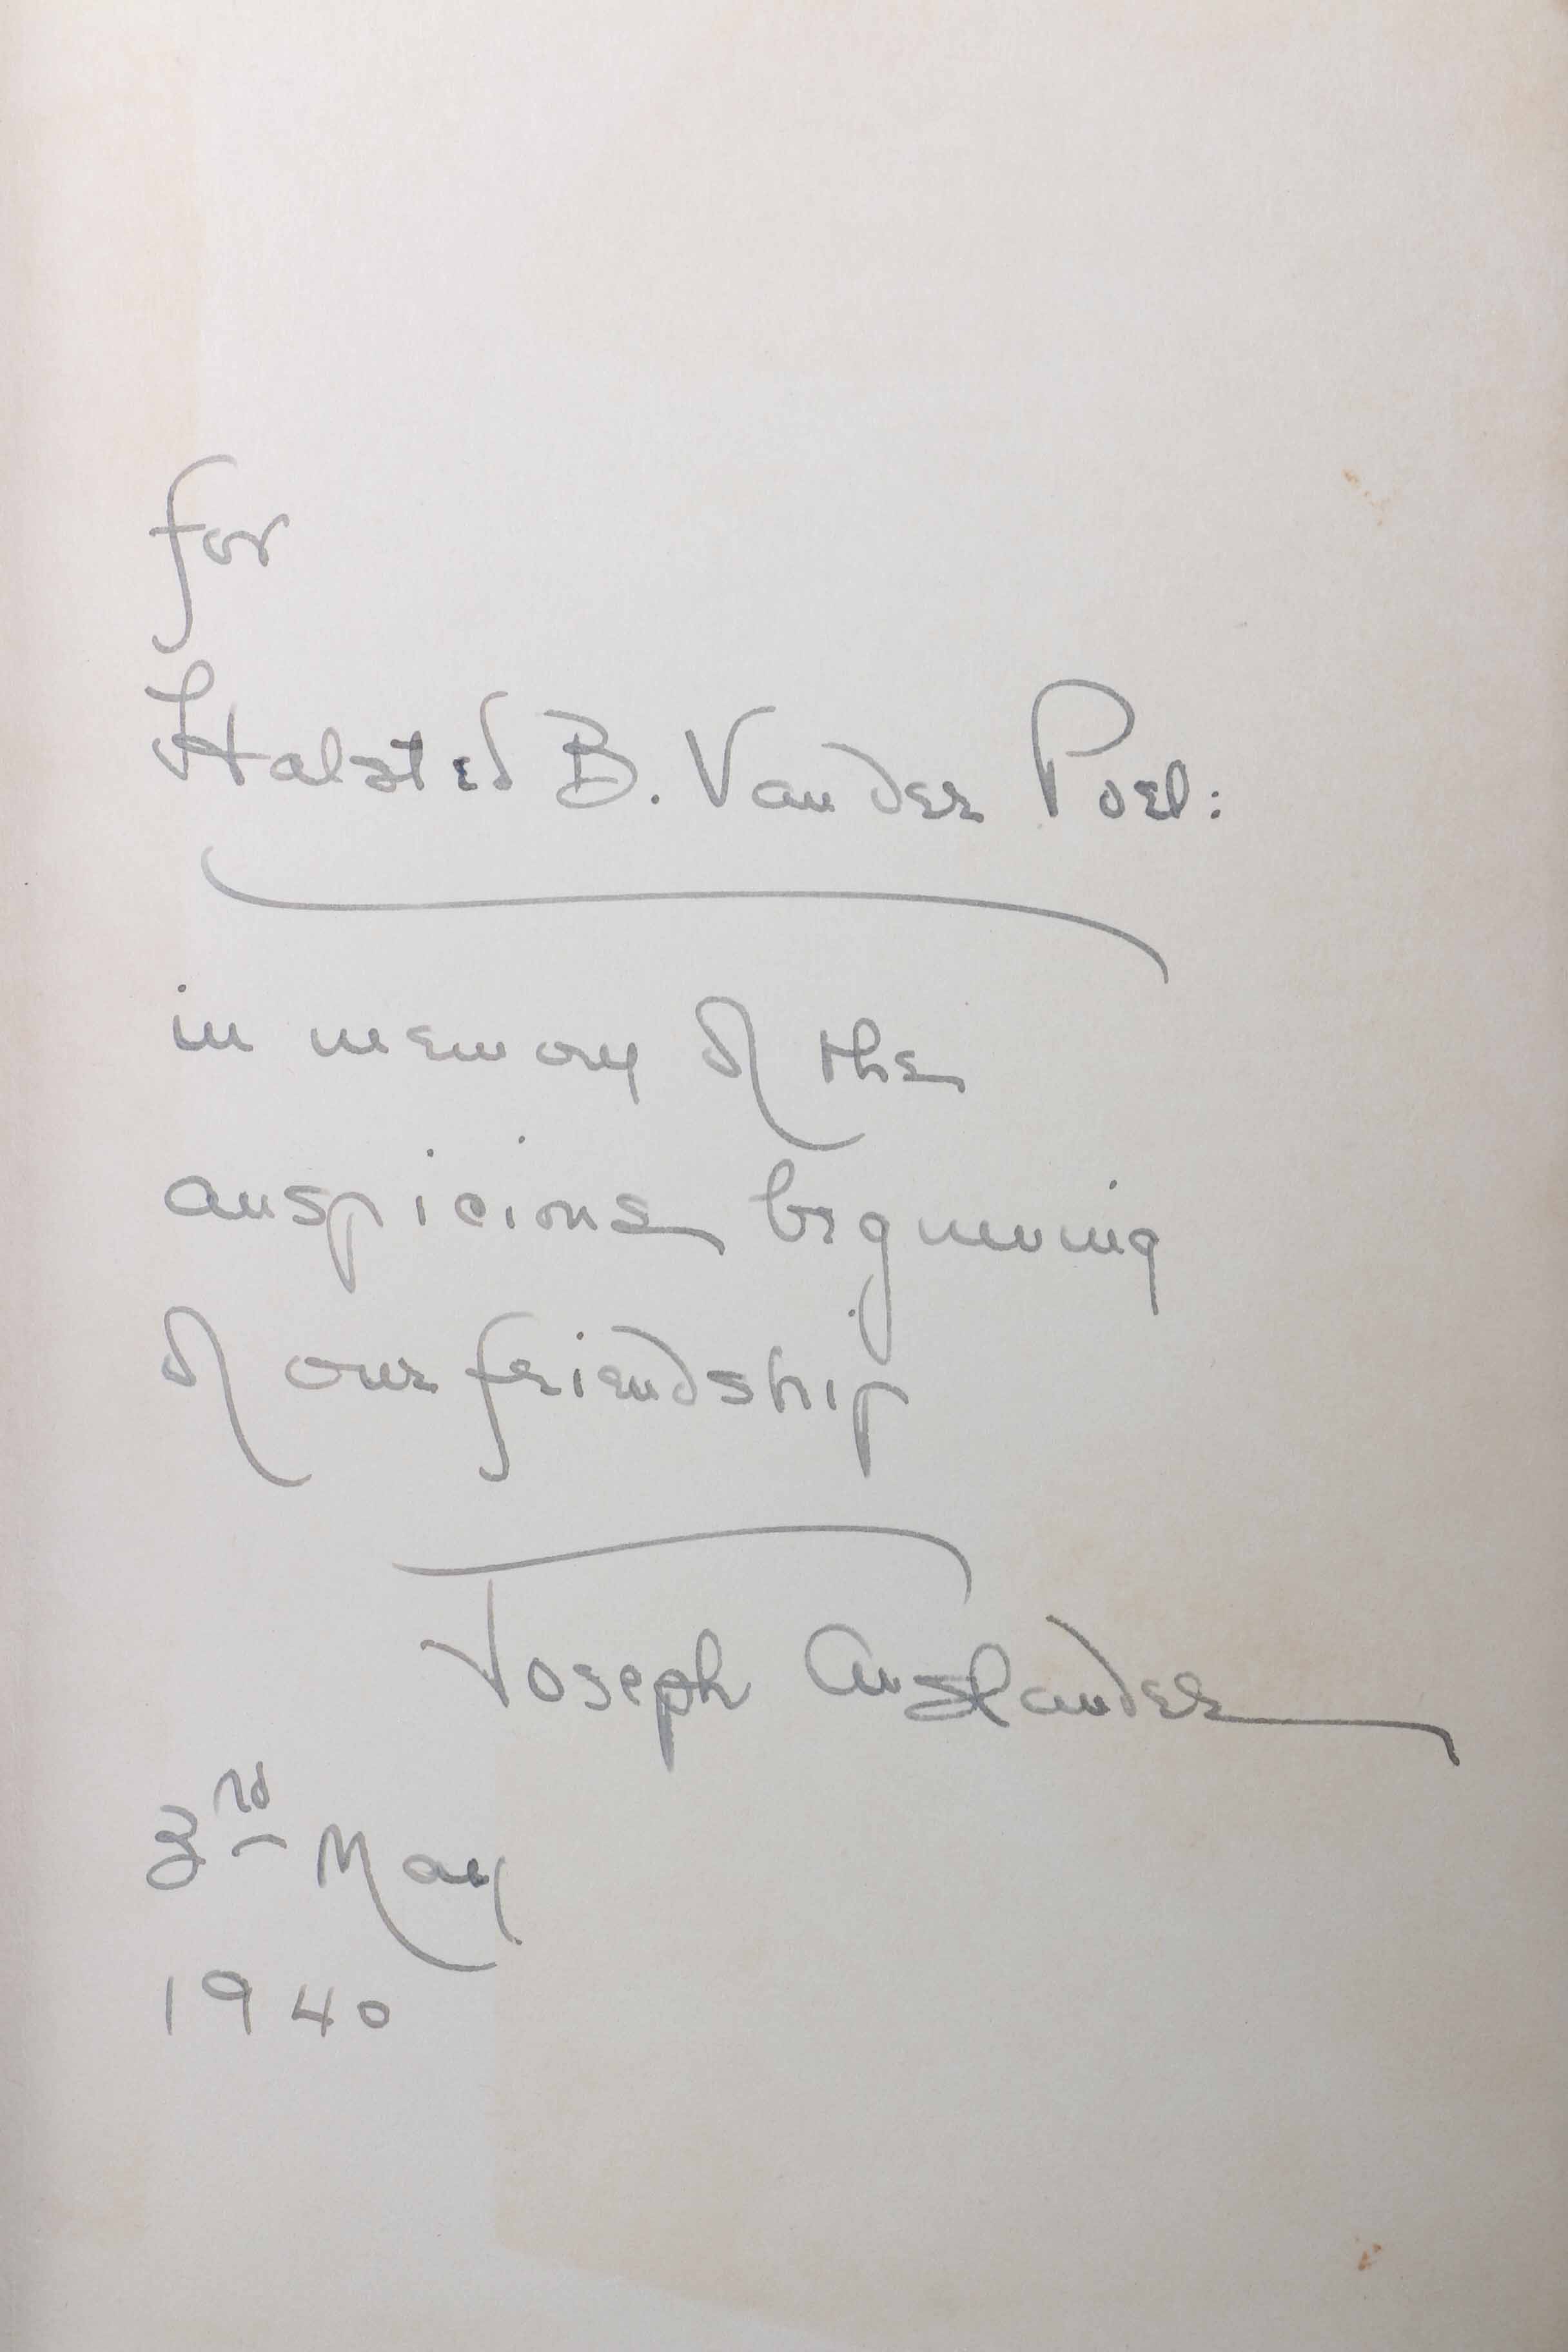 for
Halsted B. Vander Poel:
in memory of the
auspicious beginning
of our friendship
Joseph Auslander
3rd May
1940